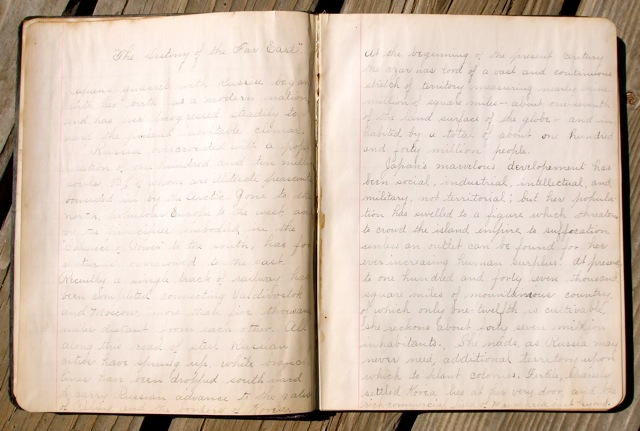 "The Destiny of the Far East"
Japan's quarrel with Russia began
with her birth as a modern nation
and has progressed steadily to
the present inevitable climax.
Russia overcrowded with a popu
lation of one hundred and ten million
souls, 85% of whom are illiterate peasants
in by the Arctic Zone to the
north, to the west and
in the
"Balance of Power" to the south, has for
to the east.
Recently a single track of railway has
been completed connecting Valdivostok
and Moscow more than five thousand
miles distant from each other. All
along this road of steel Russian
cities have sprung up, while branch
lines have been dropped southward
to carry Russian advance to the gates
of Korea
At the beginning of the present century
the czar was lord of a vast and continuous
stretch of territory measuring nearly nine
million of square miles - about one-seventh
of the land surface of the globe - and in-
habited by a total of about one hundred
and forty million people.
Japan's marvelous developement has
been social, industrial, intellectual, and
military, not territorial; but her popula-
tion has swelled to a figure which threatens
to crowd the island empire to suffocation
unless an outlet can be found for her
ever increasing human surplus. At present
to one hundred and forty seven thousand
square miles of mountaneous country,
of which only one-twelfth is cultivable
she reckons about forty seven million
inhabitants. She needs, as Russia may
never need, additional territory upon
which to plant colonies. Fertile, sparsely
settled Korea lies at her very door, and the
rich commercial